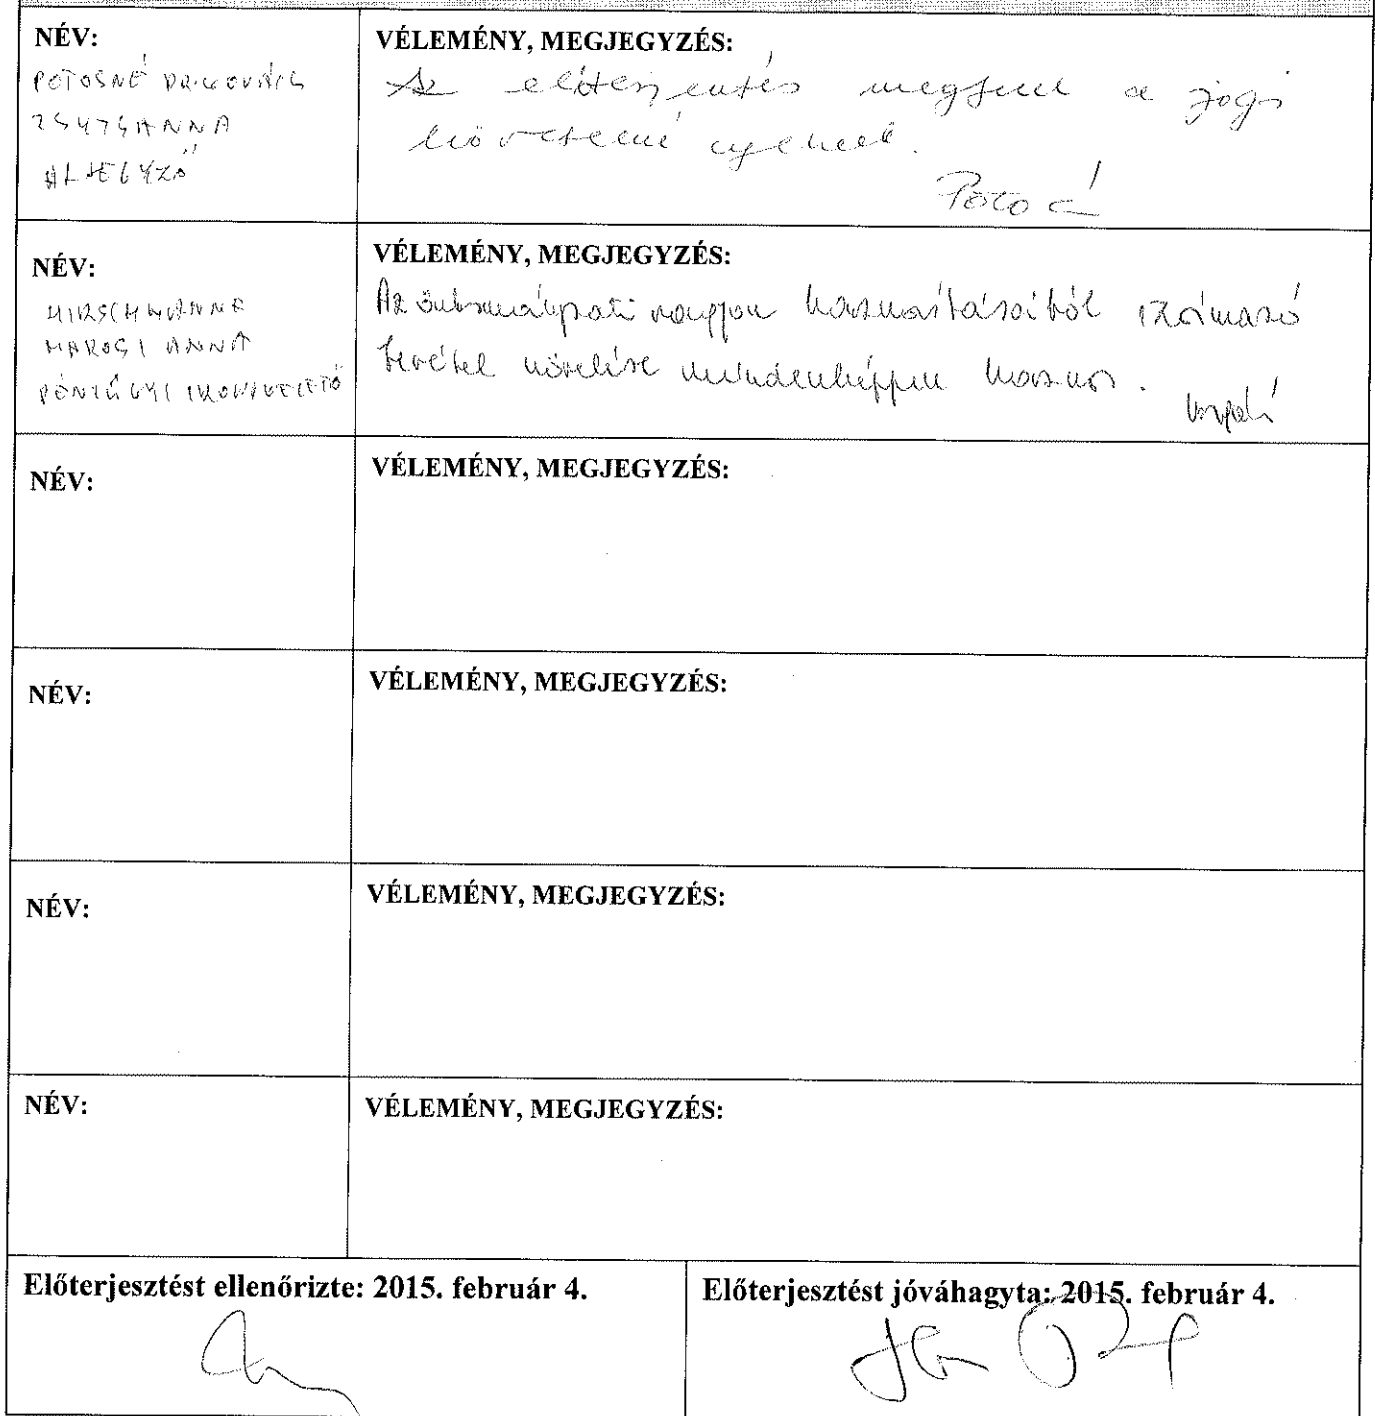 NÉV:
VÉLEMÉNY, MEGJEGYZÉS:
ZSUZSANNA
ALJEGYZŐ
Az előterjesztés megfelel a jogi
követelményeknek.
NÉV:
VÉLEMÉNY, MEGJEGYZÉS:
HIRSCHMANNÉ
MAROSI ANNA
PÉNZÜGYI IRODAVEZETŐ
Az önkormányzati vagyon hasznosításából származó
bevétel növelése mindenképpen hasznos.
NÉV:
VÉLEMÉNY, MEGJEGYZÉS:
NÉV:
VÉLEMÉNY, MEGJEGYZÉS:
NÉV:
VÉLEMÉNY, MEGJEGYZÉS:
NÉV:
VÉLEMÉNY, MEGJEGYZÉS:
Előterjesztést ellenőrizte: 2015. február 4.
Előterjesztést jóváhagyta: 2015. február 4.